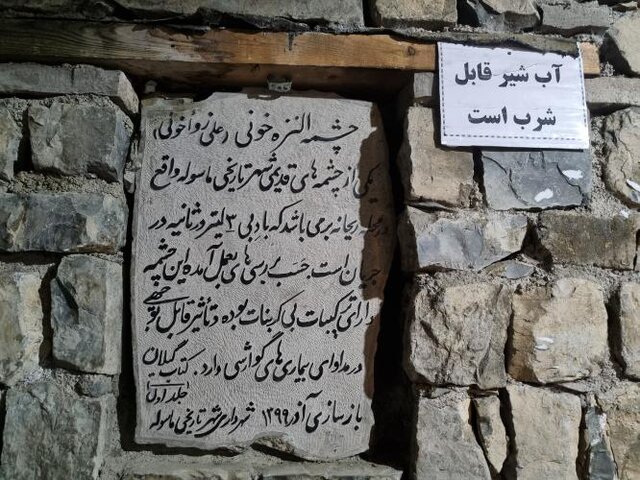 آب شیر قابل
شرب است
چشمه النزه خونی (علی زوا خونی)
یکی از چشمه های قدیمی شهر تاریخی ماسوله واقع
در محله ریحانه بر می باشد که با دبی ۳ لیتر در ثانیه در
جریان است. حسب بررسی های بعمل آمده این چشمه
دارای ترکیبات بی کربنات بوده و تاثیر قابل توجهی
در مداوای بیماری های گوارشی دارد. کتاب گیلان
جلد اول
بازسازی آذر ۱۳۹۹ شهرداری شهر تاریخی ماسوله